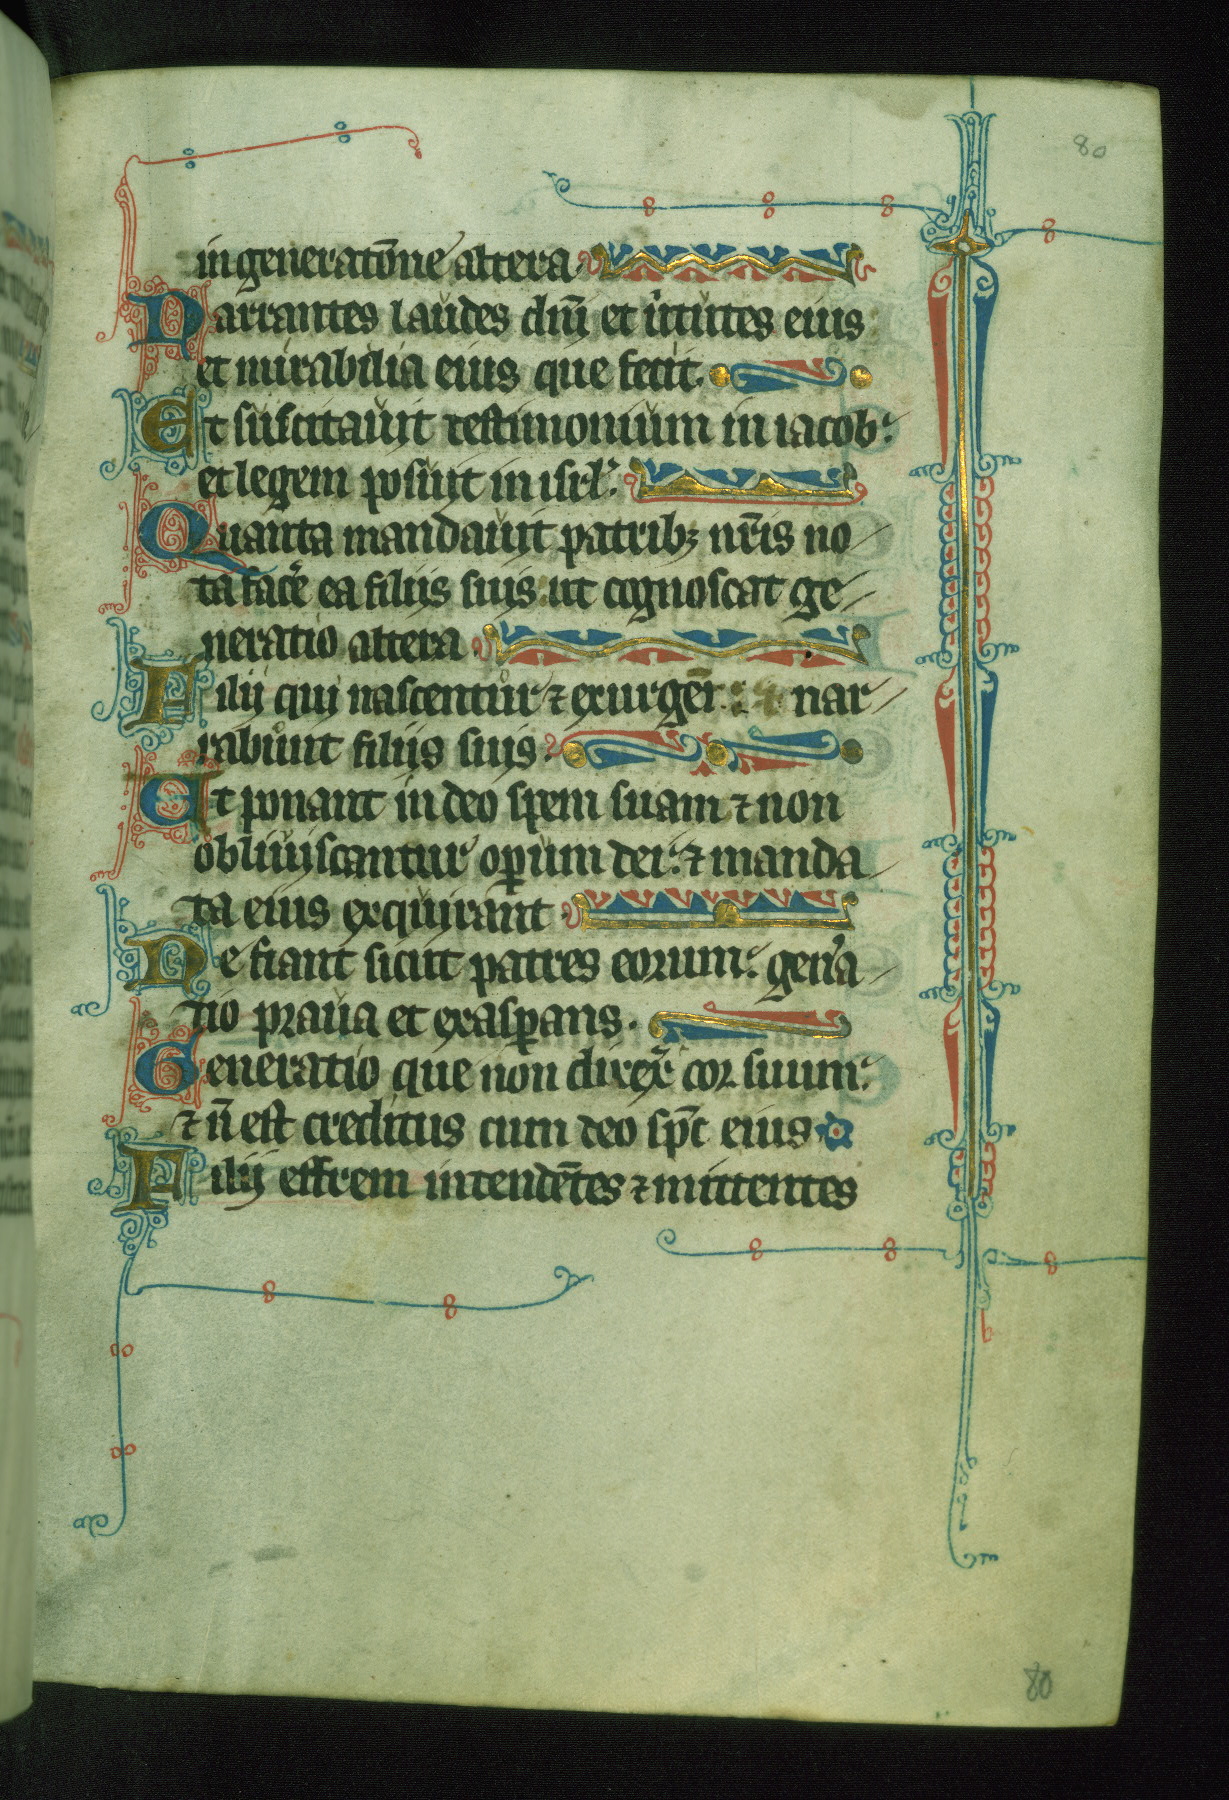 80
in generatōne altera
Narrantes laudes dn̄i et u̇tutes eius
et mirabilia eius que fecit.
Et suscitauit testimonium in iacob:
et legem posuit in isrl̄.
Quanta mandauit patribꝫ nr̄is no
ta facē ea filijs suis ut cognoscat ge
neratio altera
Filij qui nascentur ⁊ exurgēt nar
rabunt filijs suis.
Et ponant in deo spem suam ⁊ non
obliuiscantur oꝑum dei: ⁊ manda
ta eius exquirant
Ne fiant sicut patres eorum: gen̄a
tio praua et exasꝑans.
Generatio que non direx̄ cor suum:
⁊ n̄ est creditus cum deo sp̄c eius
Filij effrem intendētes ⁊ mittentes
80